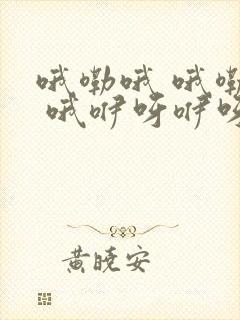 哦嘞哦 哦嘞
哦咿呀咿呀
黄晓安